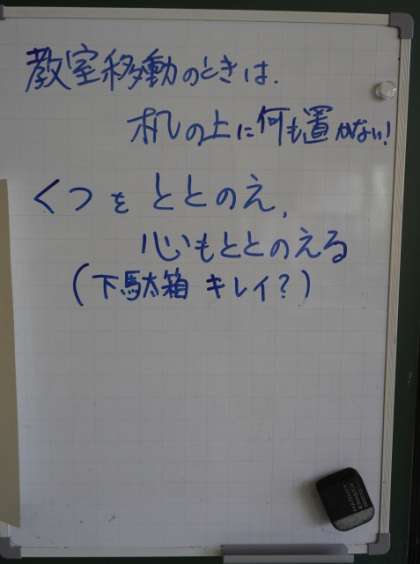 教室移動のときは、
机の上に何も置かない!
くつを ととのえ、
心もととのえる
(下駄箱 キレイ?)